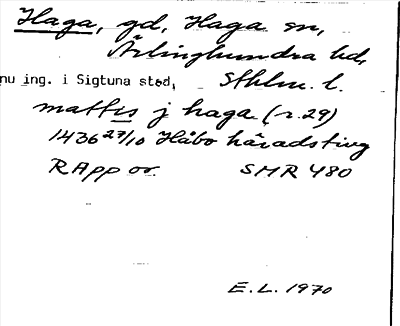 Haga, gd, Haga sn,
Ärlinghundra hd,
nu ing. i Sigtuna stad, Sthlm. l.
mattis j haga (r. 29)
1436 27/10 Håbo häradsting
RApp or. SMR 480
E.L. 1970